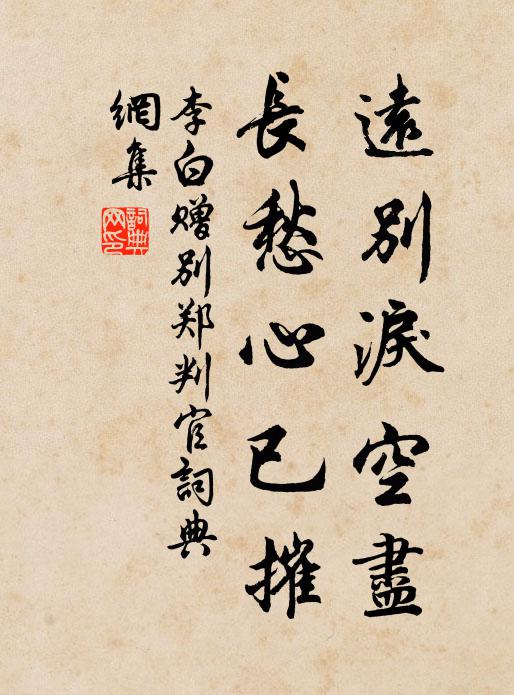 遠别淚空盡
長愁心已摧
李白赠别郑判官詞典
網集
詞典
网印